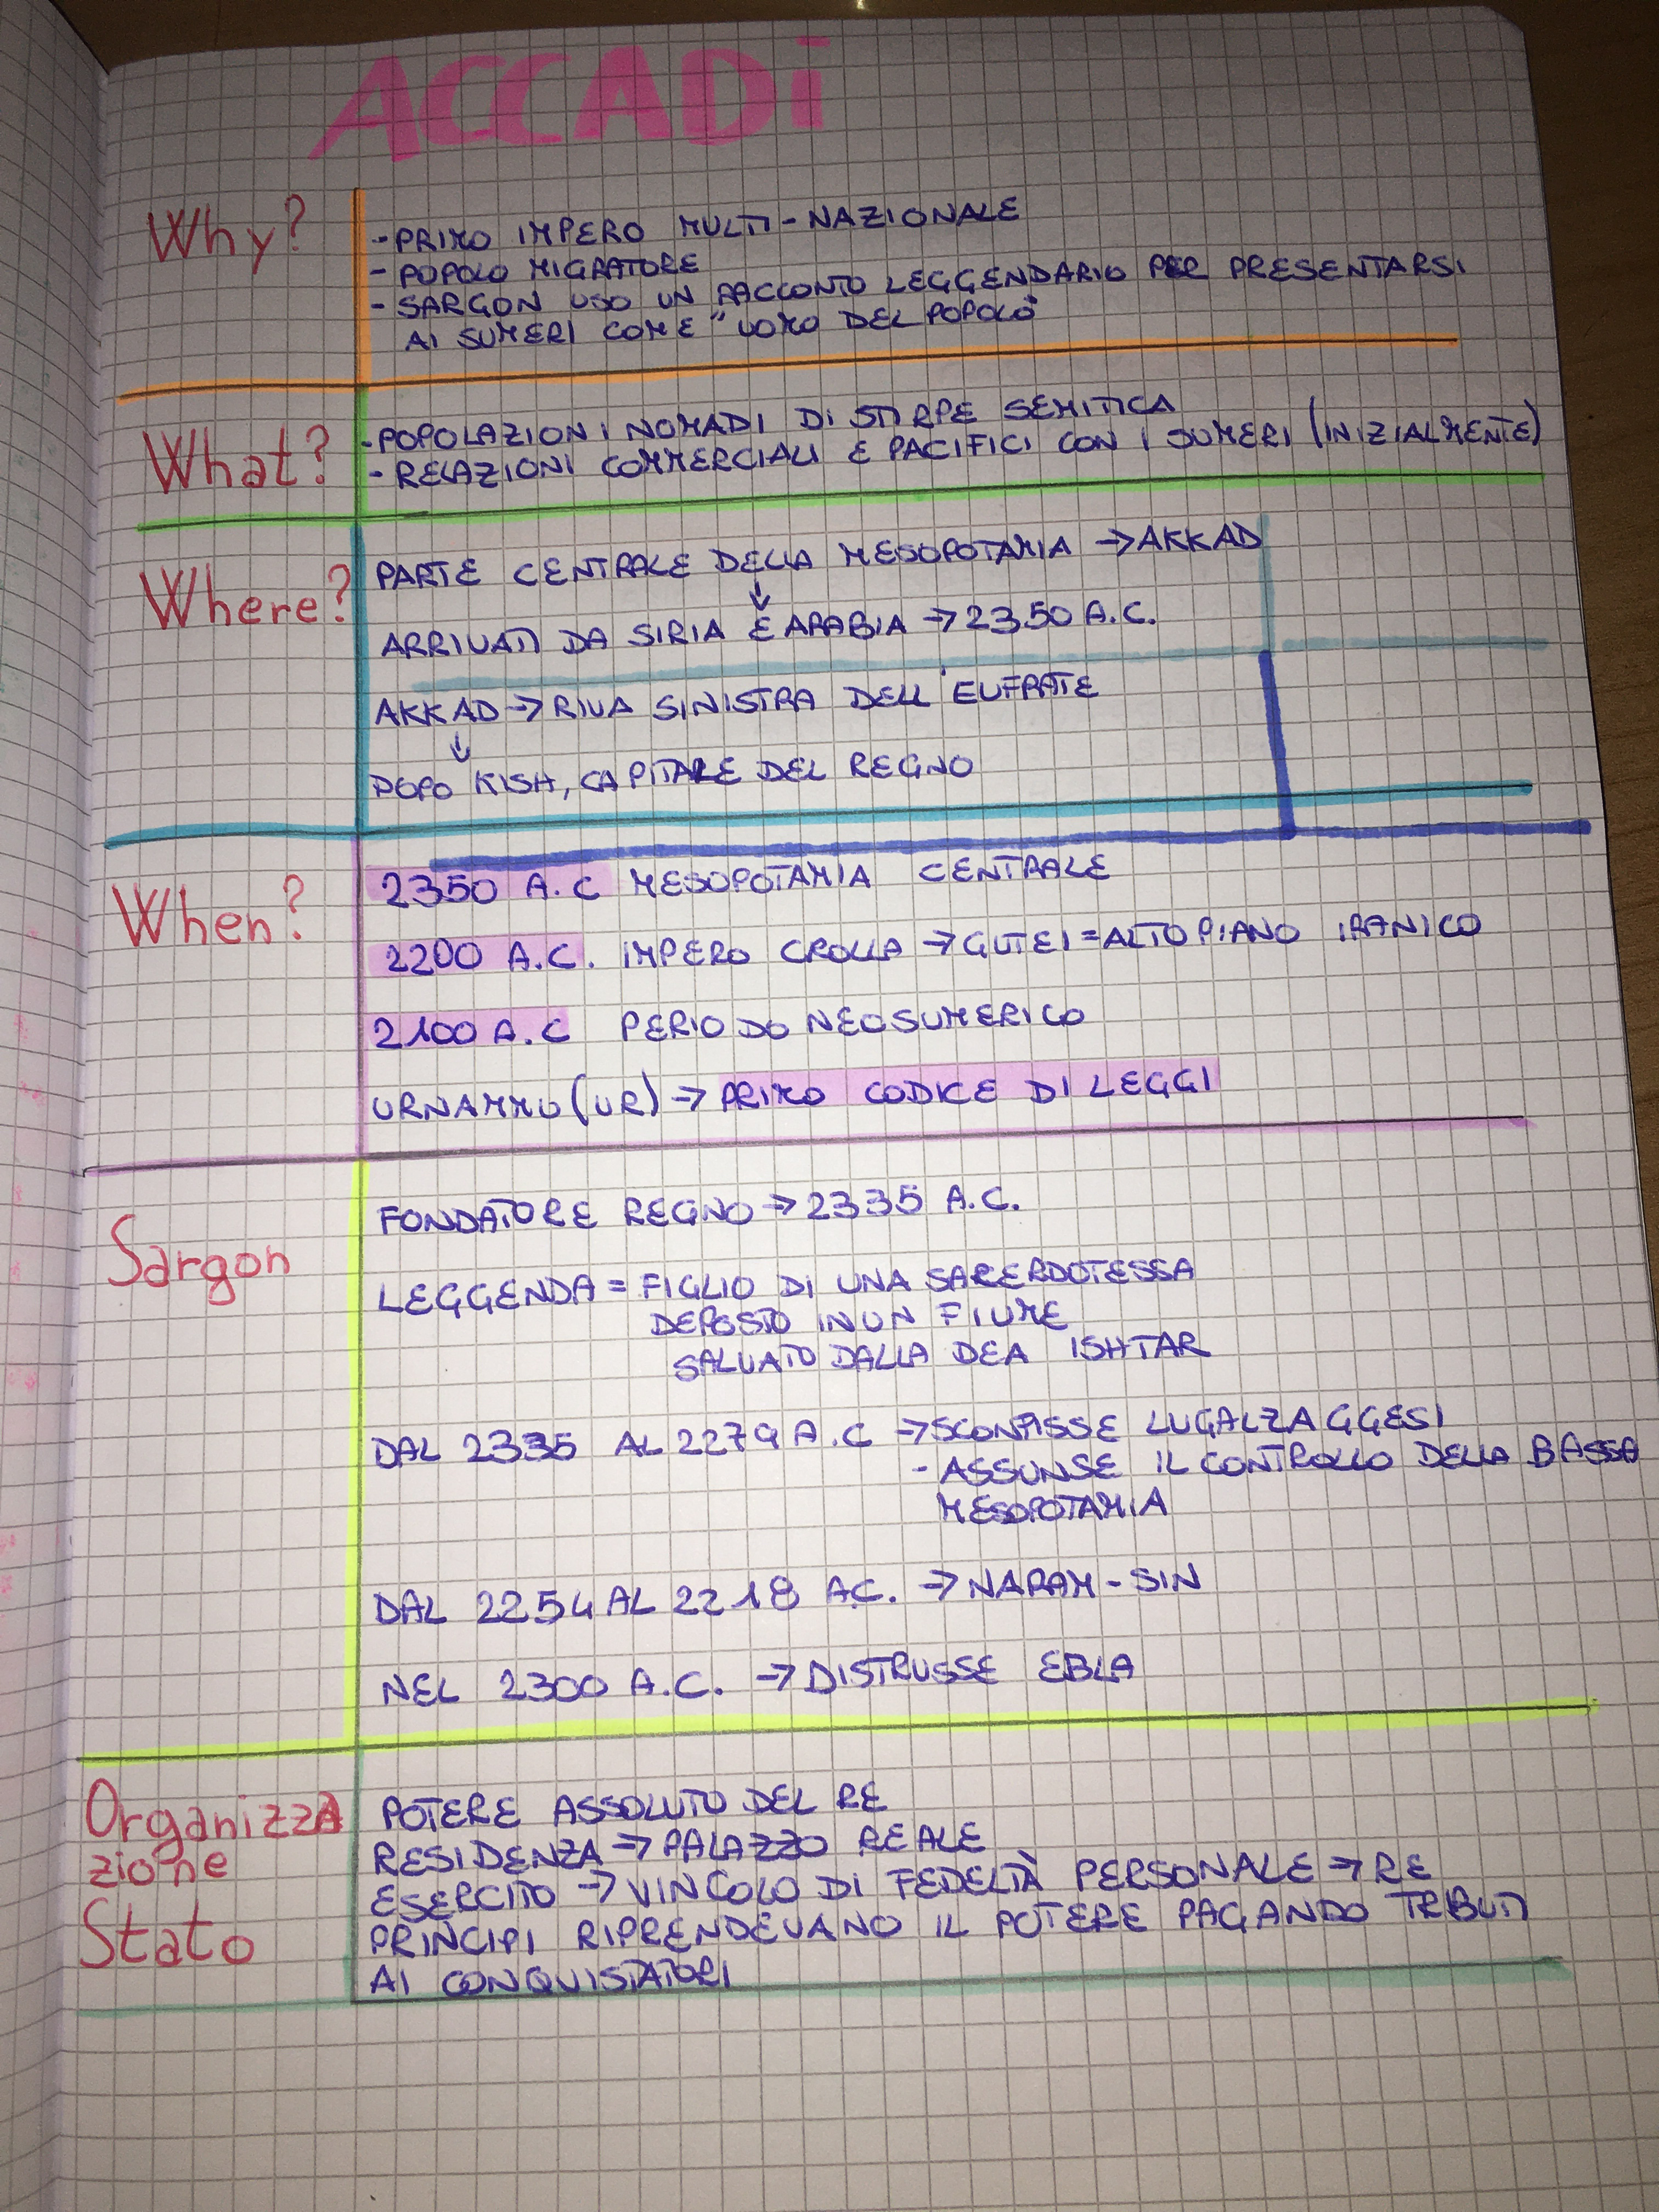 ACCADi
Why?
- PRIMO IMPERO MULTI-NAZIONALE
- POPOLO MIGRATORE
- SARGON USO UN RACCONTO LEGGENDARIO PER PRESENTARSI
AI SUMERI COME "UOMO DEL POPOLO"
What?
- POPOLAZIONI NOMADI DI STIRPE SEMITICA
- RELAZIONI COMMERCIALI E PACIFICI CON I SUMERI (INIZIALMENTE)
Where?
PARTE CENTRALE DELLA MESOPOTAMIA → AKKAD
↓
ARRIVATI DA SIRIA E ARABIA → 2350 A.C.
AKKAD → RIVA SINISTRA DELL'EUFRATE
↓
DOPO KISH, CAPITALE DEL REGNO
When?
2350 A.C MESOPOTAMIA CENTRALE
2200 A.C. IMPERO CROLLA → GUTEI = ALTOPIANO IRANICO
2100 A.C PERIODO NEOSUMERICO
URNAMMU (UR) → PRIMO CODICE DI LEGGI
Sargon
FONDATORE REGNO → 2335 A.C.
LEGGENDA = FIGLIO DI UNA SACERDOTESSA
DEPOSTO IN UN FIUME
SALVATO DALLA DEA ISHTAR
DAL 2335 AL 2279 A.C → SCONFISSE LUGALZAGGESI
- ASSUNSE IL CONTROLLO DELLA BASSA
MESOPOTAMIA
DAL 2254 AL 2218 A.C. → NARAM-SIN
NEL 2300 A.C. → DISTRUSSE EBLA
Organizza
zione
Stato
POTERE ASSOLUTO DEL RE
RESIDENZA → PALAZZO REALE
ESERCITO → VINCOLO DI FEDELTÀ PERSONALE → RE
PRINCIPI RIPRENDEVANO IL POTERE PAGANDO TRIBUTI
AI CONQUISTATORI